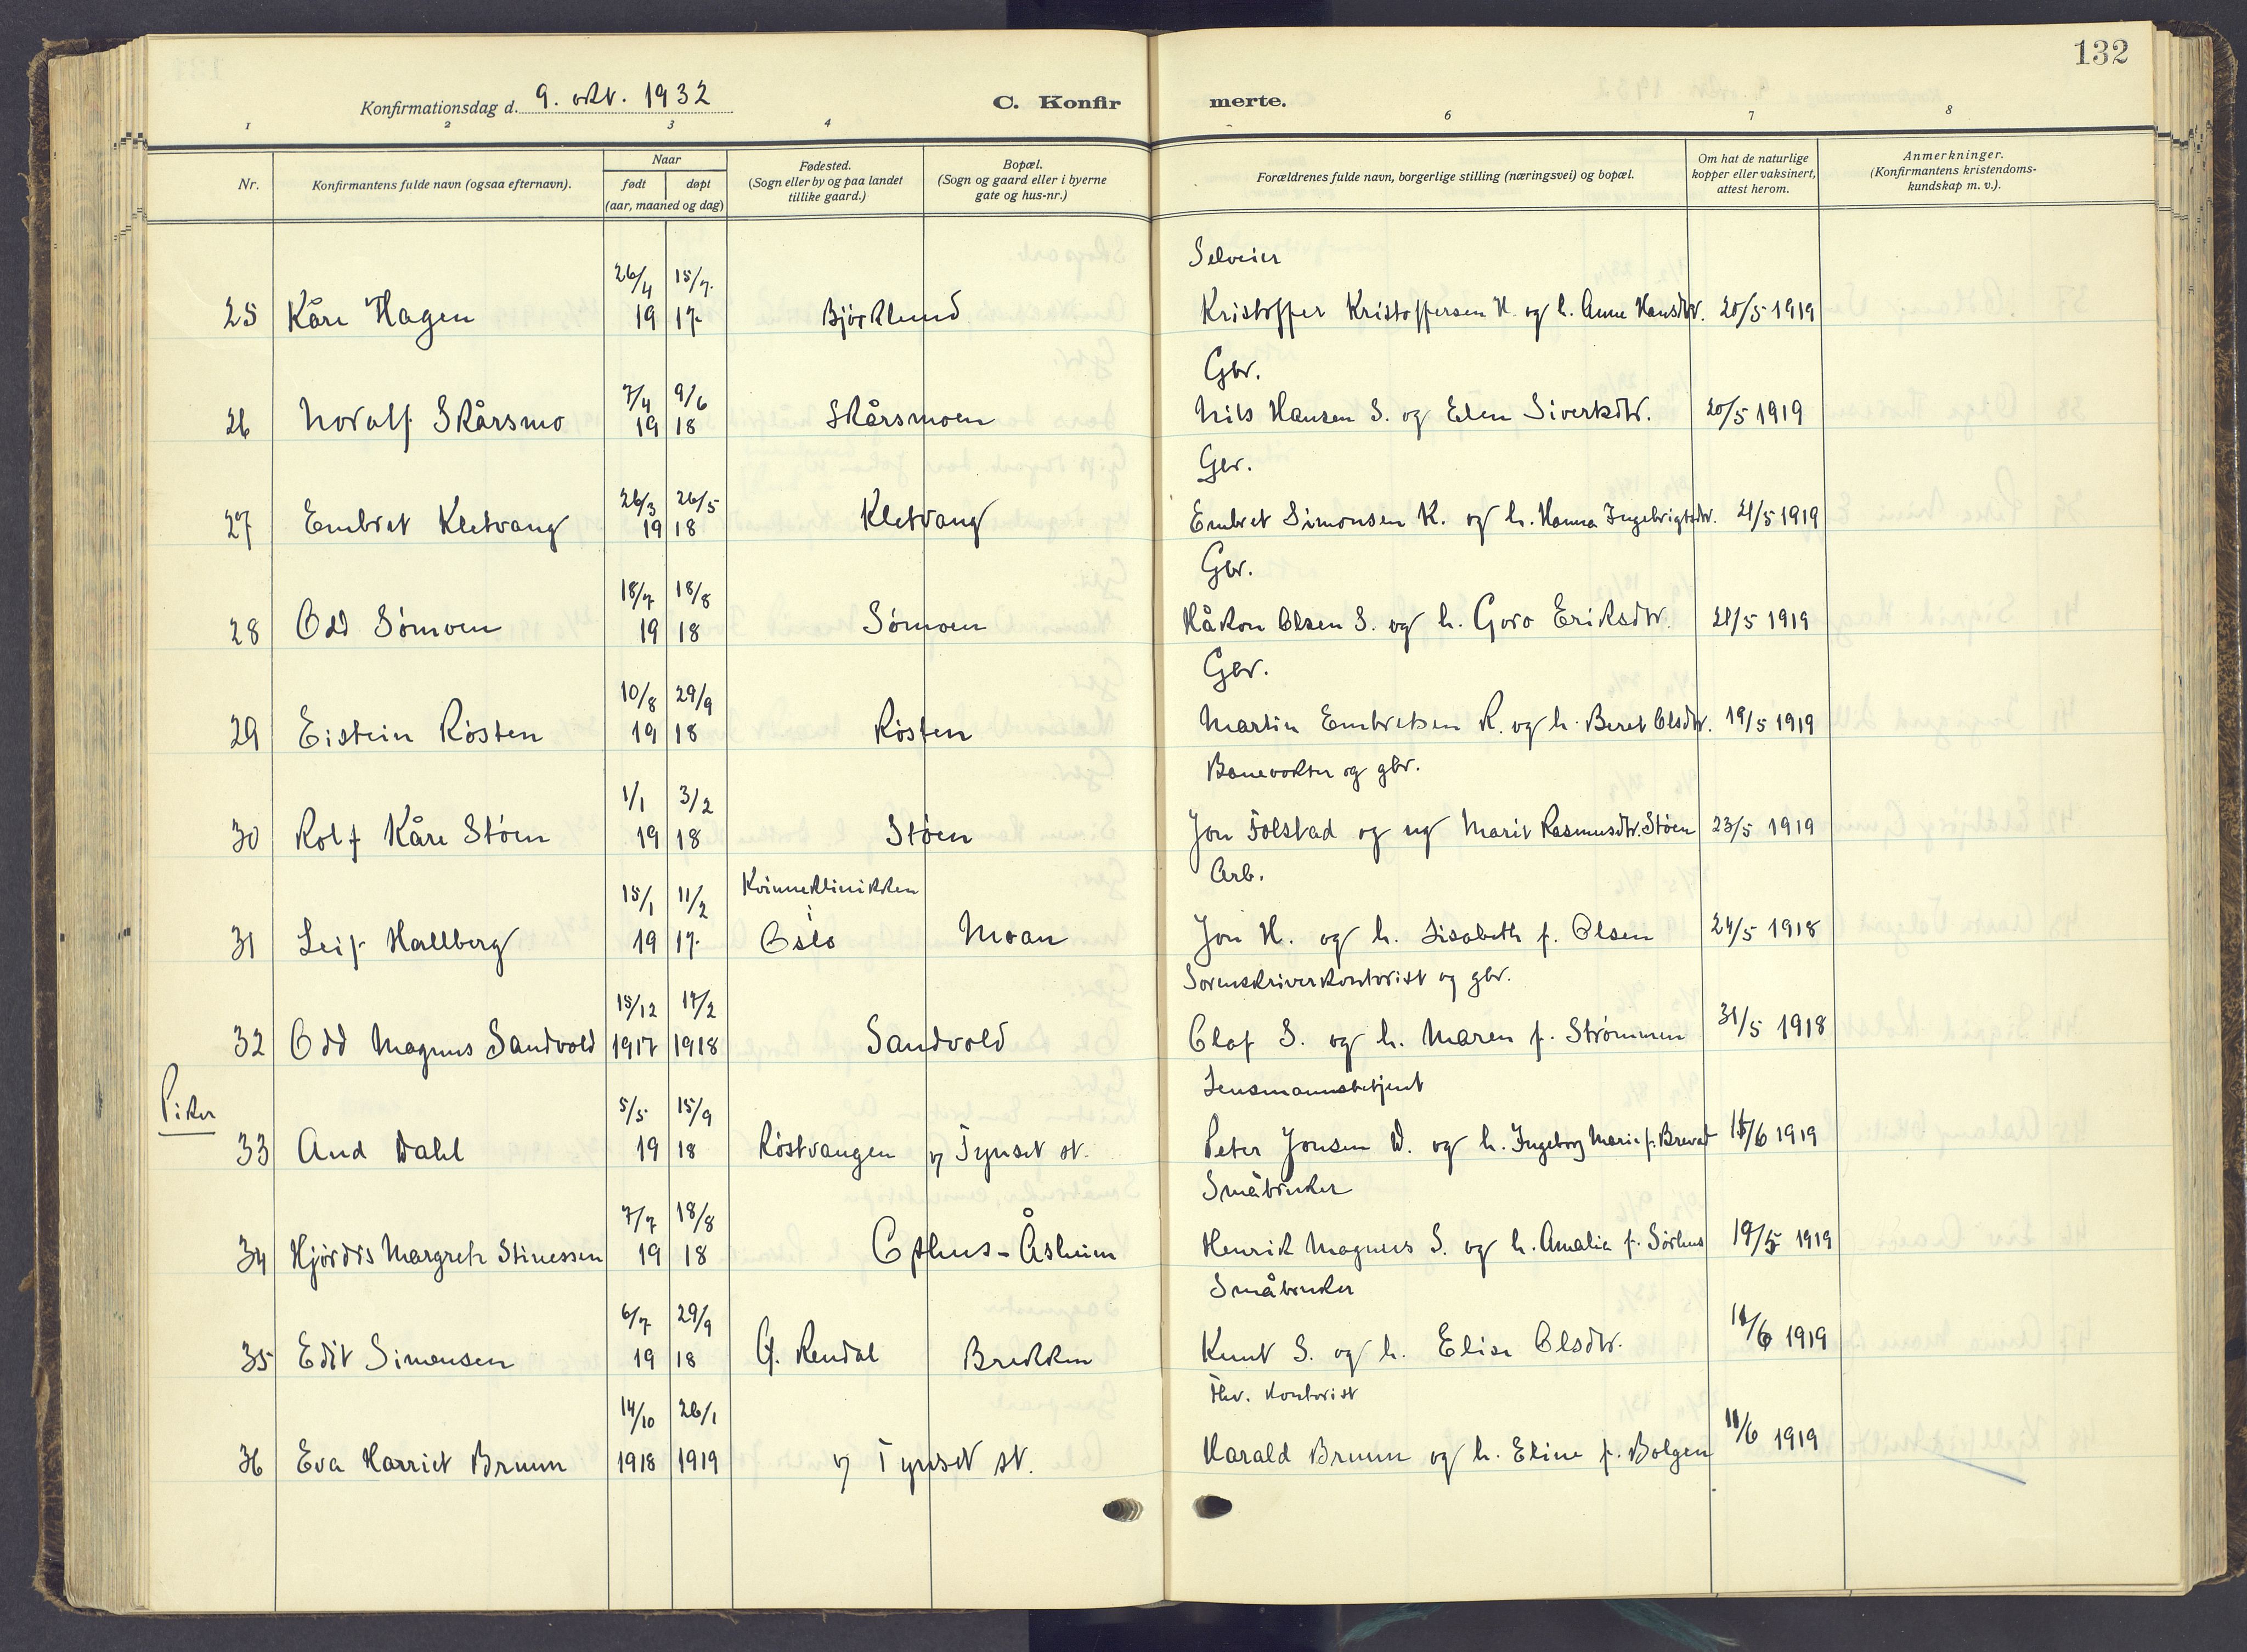 132
Konfirmationsdag d. 9. okt. 1932
C. Konfir merte.
1 2 3 4 6 7 8
Nr. Konfirmantens fulde navn (ogsaa efternavn). Naar født døpt (aar, maaned og dag) Fødested. (Sogn eller by og paa landet tillike gaard.) Bopæl. (Sogn og gaard eller i byerne gate og hus-nr.) Forældrenes fulde navn, borgerlige stilling (næringsvei) og bopæl. Om hat de naturlige kopper eller vaksinert, attest herom. Anmerkninger. (Konfirmantens kristendoms-kundskap m. v.).
26/4 15/7 Selveier
25 Kåre Hagen 19 17 Bjørklund Kristoffer Kristoffersen H. og h. Anne Hansdtr. 20/5 1919
7/4 9/6 Gbr.
26 Nordalf Skårsmo 19 18 Skårsmoen Nils Hansen S. og Elen Sivertsdtr. 20/5 1919
26/3 26/5 Gbr.
27 Embret Kletvang 19 18 Kletvang Embret Simonsen K. og h. Hanna Ingebrigtsdtr. 21/5 1919
18/7 18/8 Gbr.
28 Odd Sømoen 19 18 Sømoen Håkon Olsen S. og h. Goro Eriksdtr. 21/5 1919
10/8 29/9 Gbr.
29 Eistein Røsten 19 18 Røsten Martin Embretsen R. og h. Beret Olsdtr. 19/5 1919
1/1 3/2 Banevokter og gbr.
30 Rolf Kåre Støen 19 18 Støen Jon Tolstad og ug Marit Rasmusdtr. Støen 23/5 1919
15/1 11/2 Kvinneklinikken i Arb.
31 Leif Hallberg 19 17 Oslo Moan Jon H. og h. Lisabeth f. Olsen 24/5 1918
15/12 17/2 Sorenskriverkontorist og gbr.
32 Odd Magnus Sandvold 1917 1918 Sandvold Olaf S. og h. Maren f. Strømmen 31/5 1918
Piker
5/5 15/9 Lensmannsbetjent
33 Aud Dahl 19 18 Røstvangen v/ Tynset st. Peter Jonsen D. og h. Ingeborg Marie f. Brevad /6 1919
7/7 18/8 Småbruker
34 Hjørdis Margrete Stinessen 19 18 Opthus-Åsheim Henrik Magnus S. og h. Amalia f. Sørhus 19/5 1919
6/7 29/9 Småbruker
35 Edit Simensen 19 18 Ø. Rendal Brekken Knut S. og h. Elise Olsdtr. /6 1919
14/10 26/1 Fhv. kontorist
36 Eva Harriet Bruun 1918 1919 v/ Tynset st. Harald Bruun og h. Eline f. Bolgen 11/6 1919